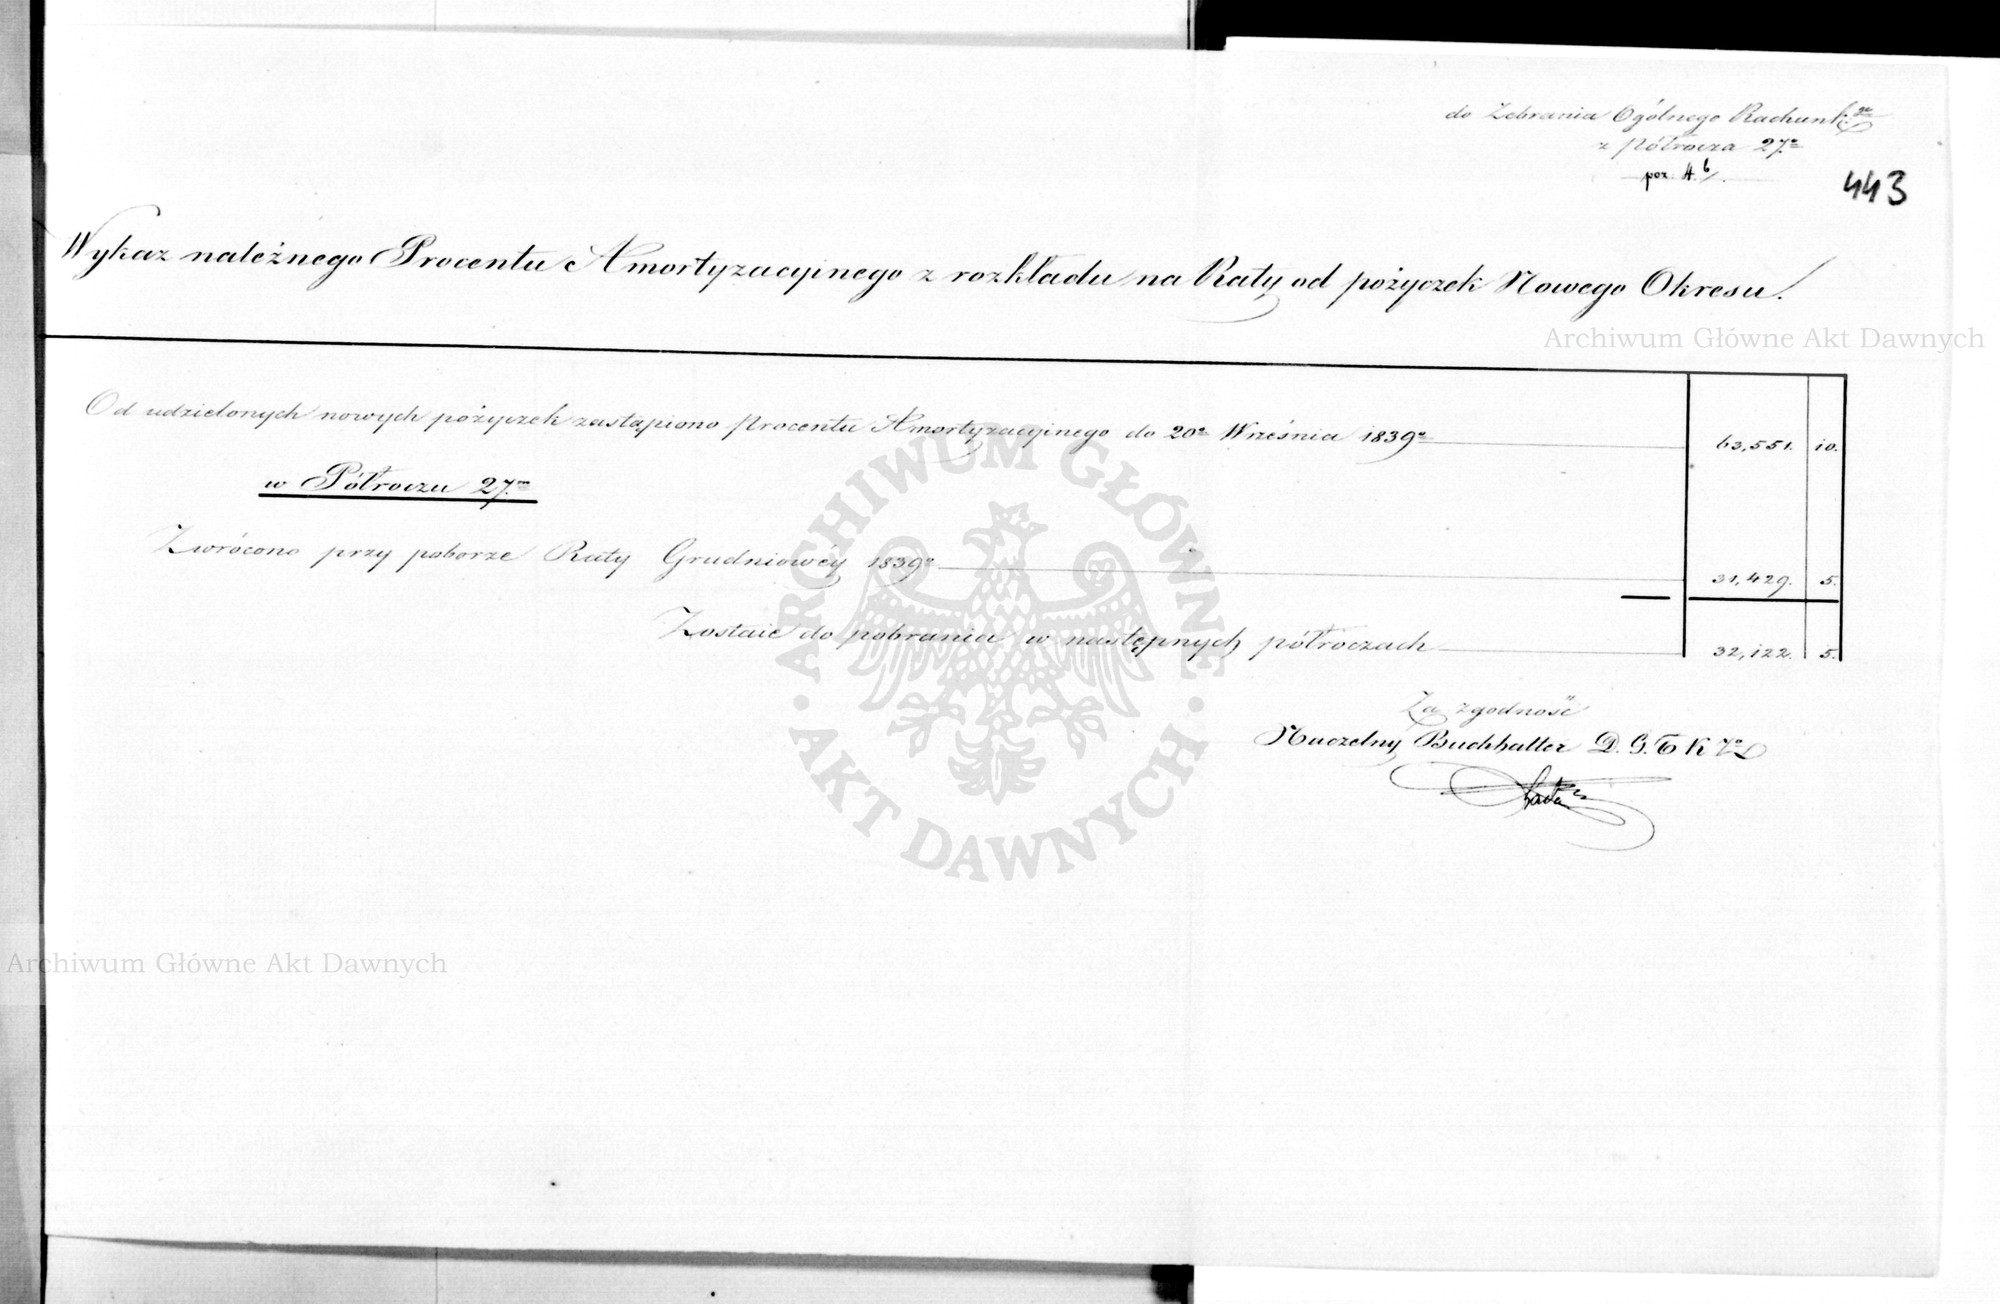 do Zebrania Ogólnego Rachunk:go
z Półrocza 27.o
poz. 4. b/.
443
Wykaz należnego Procentu Amortyzacyjnego z rozkładu na Raty od pożyczek Nowego Okresu.
Archiwum Główne Akt Dawnych
Od udzielonych nowych pożyczek zastąpiono procentu Amortyzacyjnego do 20o Września 1839o 63,551. 10.
w Półroczu 27.m
Zwrócono przy poborze Raty Grudniowéy 1839o 31,429. 5.
Zostaie do pobrania w następnych półroczach 32,122. 5.
Za zgodność
Naczelny Buchhalter D. G. T K Zo
ARCHIWUM GŁÓWNE · AKT DAWNYCH ·
Archiwum Główne Akt Dawnych